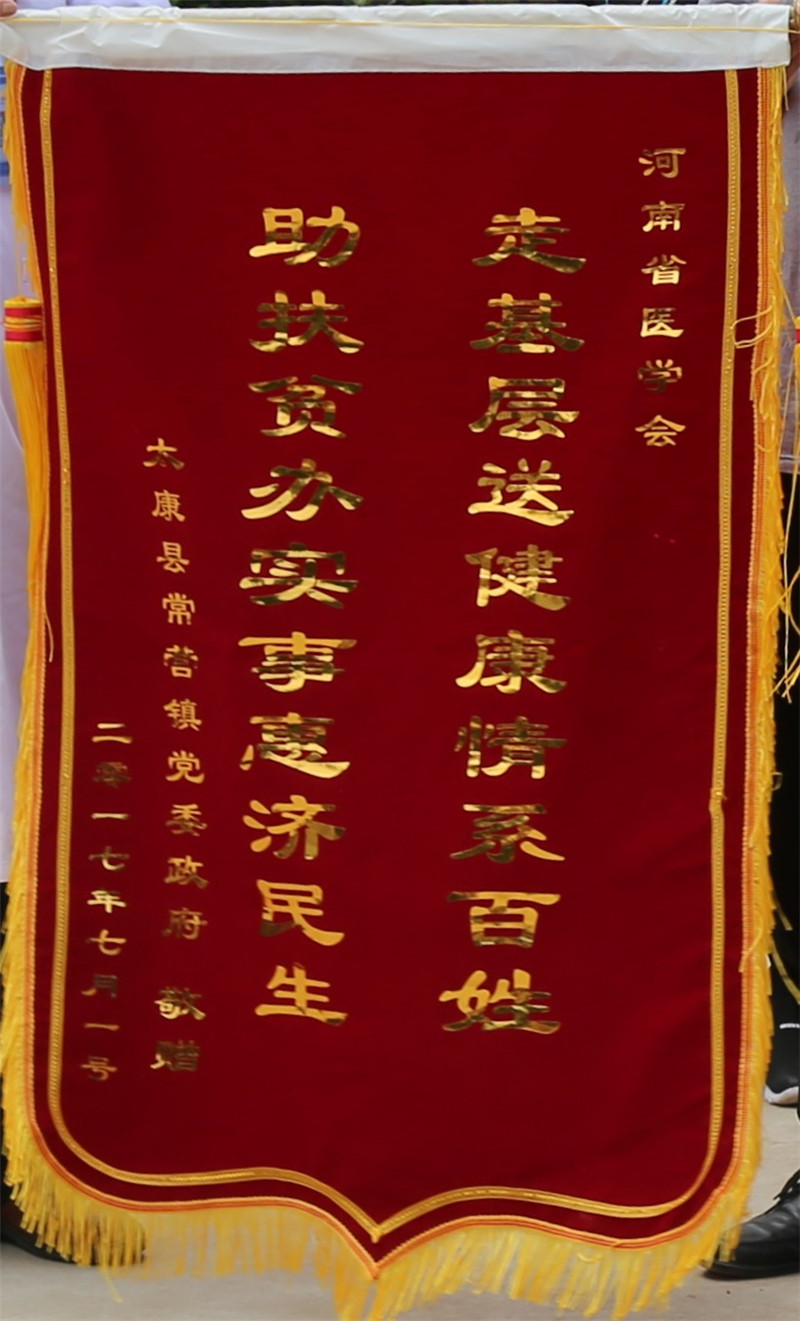 河南省医学会
走基层送健康情系百姓
助扶贫办实事惠济民生
太康县常营镇党委政府 敬赠
二零一七年七月一号